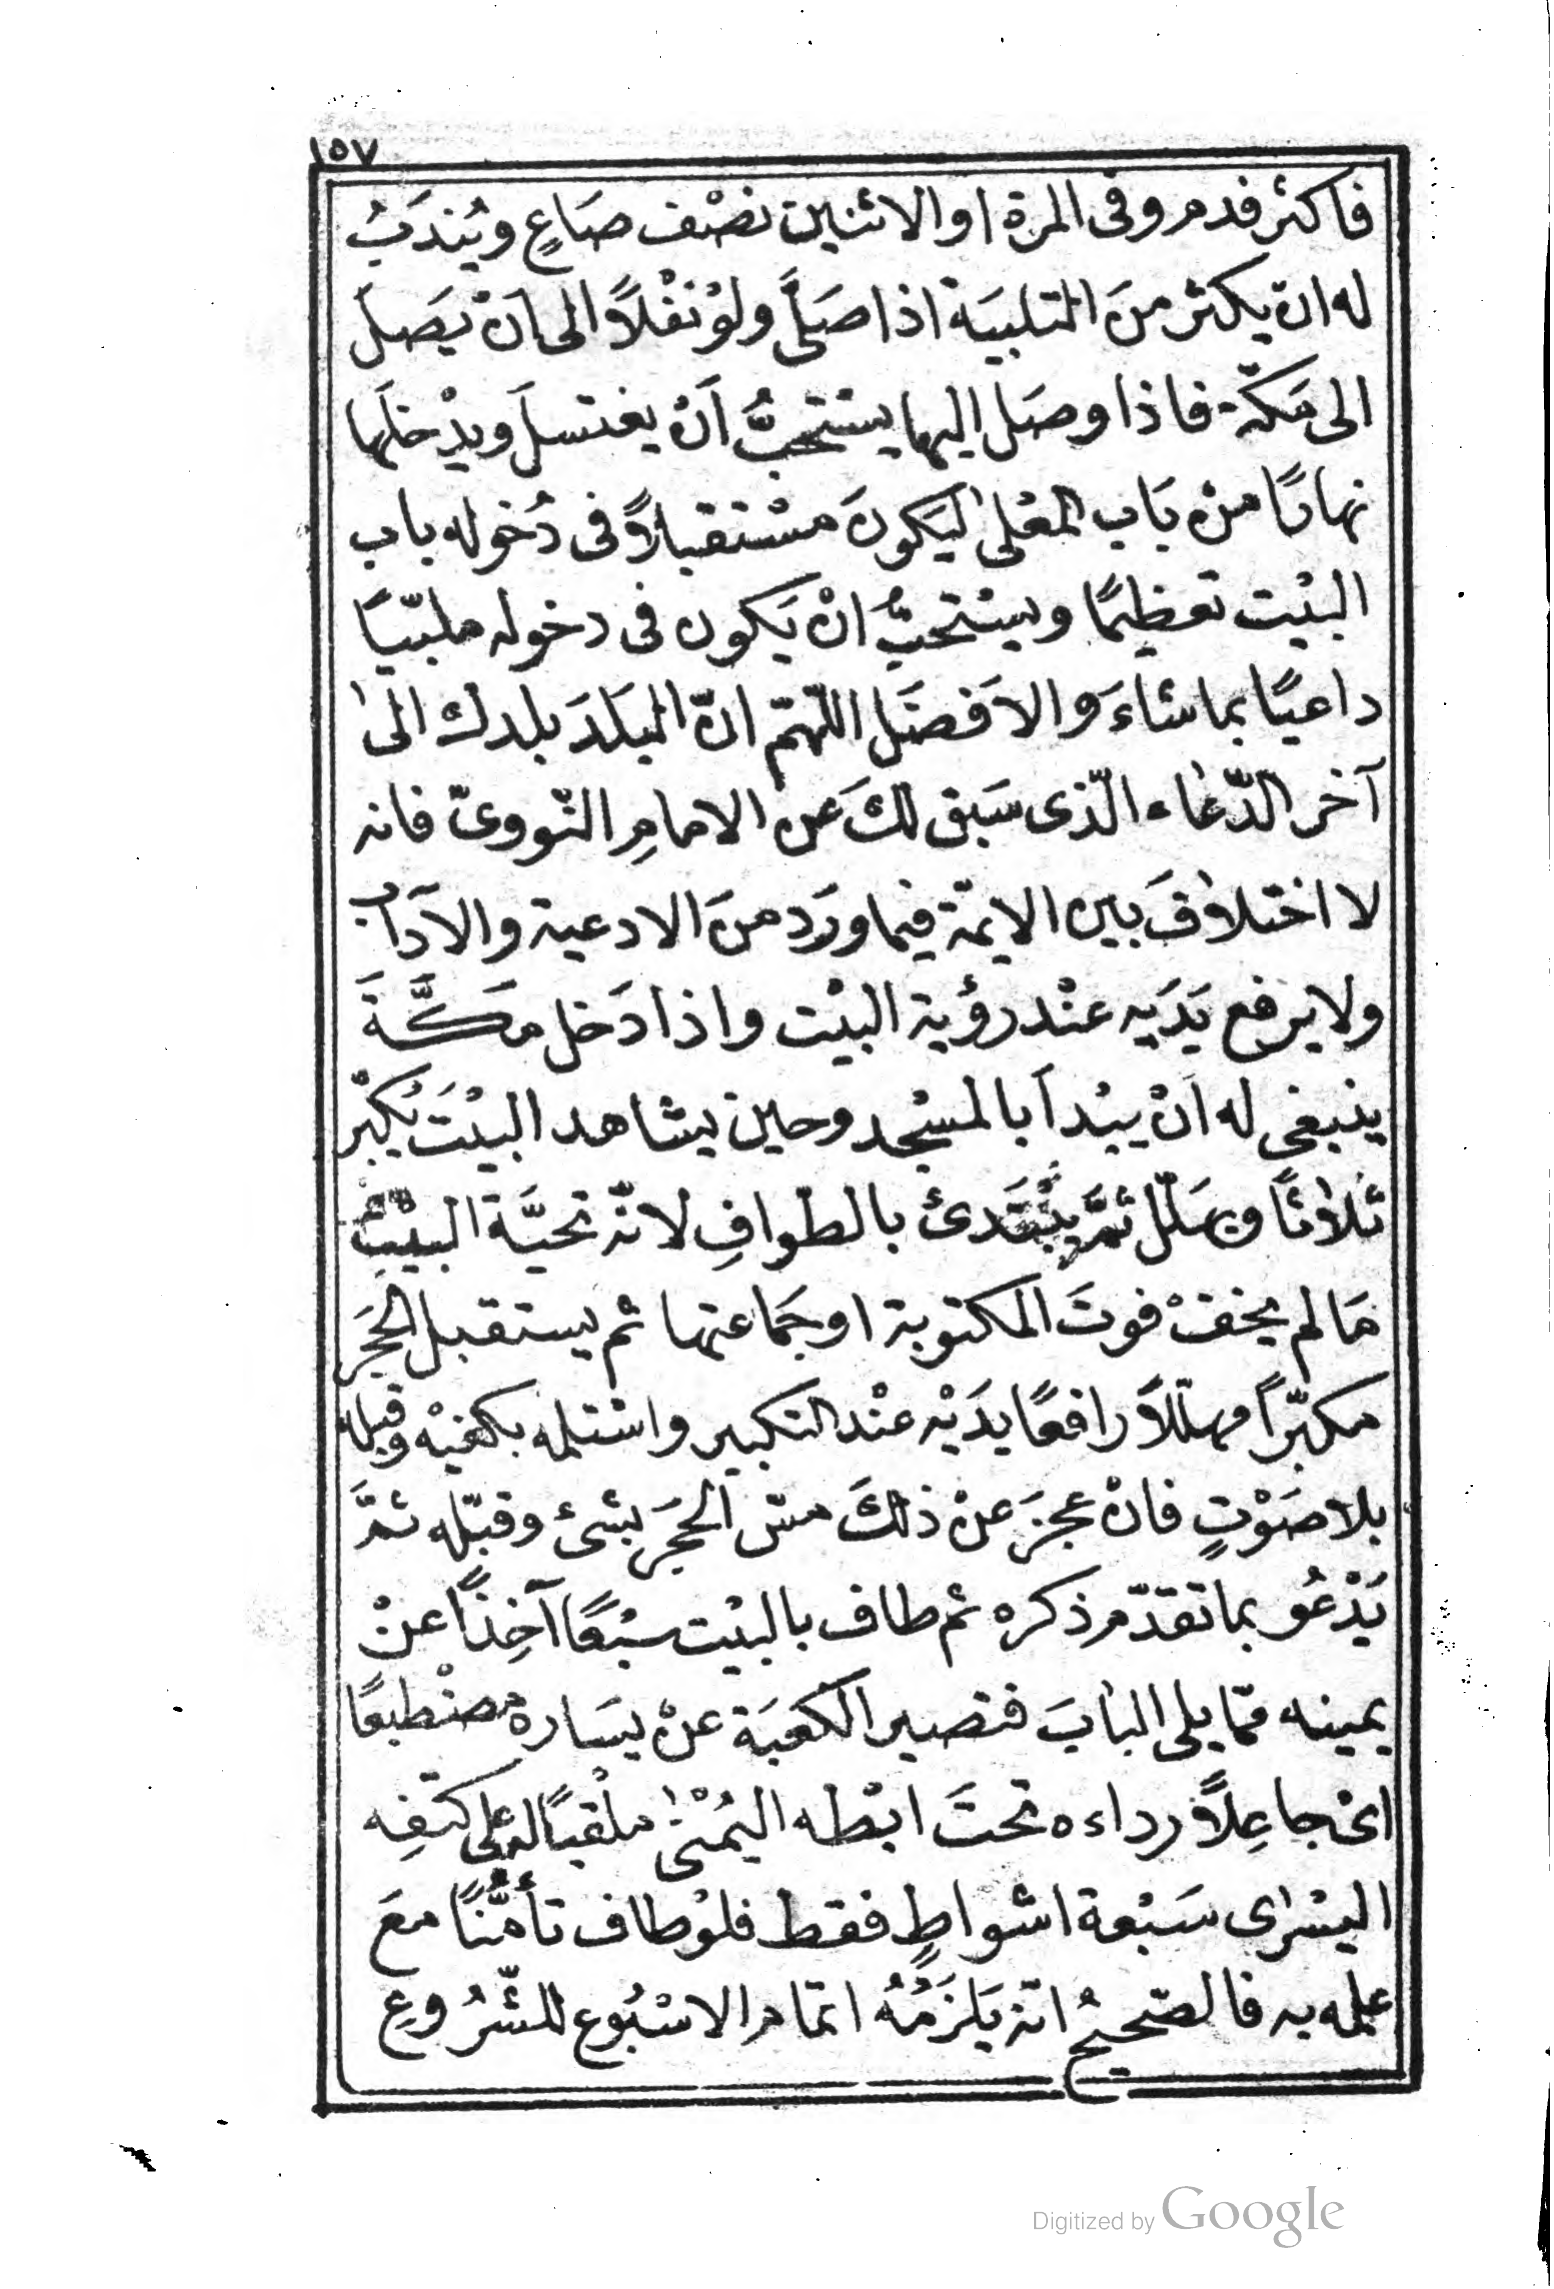 ١٥٧
فاكثر فدم وفى المرة او الاثنين نصْف صَاعٍ ويُندَبُ
له ان يكثر منَ التلبيَة اذا صَلَّى ولوْ نفْلاً الى اَنْ يَصَل
الى مَكّة فاذا وصَل اليها يسْتحبُّ اَنْ يغتسلَ ويدْخلَها
نهارًا منْ بَاب المعْلى ليَكونَ مسْتقبلاً فى دُخوله باب
البيْت تعظيمًا ويسْتحبُّ انْ يَكون فى دخوله ملبّيًا
داعيًا بما شاءَ والاَفضَل اللّهمّ انّ البَلدَ بلدك الىٰ
آخر الدّعاء الّذى سَبق لكَ عن الامامِ النّووىّ فانه
لا اختلافَ بين الايمّة فيما ورَد منَ الادعية والآداب
ولا يرفع يَدَيه عنْد رؤية البيْت واذا دَخل مَكَّةَ
ينبغى له اَنْ يبْدأ بالمسْجد وحين يشاهد البيْتَ يُكبّر
ثلاثًا ويهَلّل ثمَّ يبْتَدئ بالطّوافِ لانّه تحيَّة البيْتِ
مَا لم يخفْ فوتَ المكتوبة او جَماعتها ثم يستقبل الحَجَر
مكبّراً مهلّلاً رافعًا يدَيْه عنْد التكبير واسْتلمه بكفيْه وقبله
بلا صَوْتٍ فانْ عجزَ عنْ ذلكَ مسّ الحَجَر بشئ وقبّله ثمَّ
يَدْعُو بما تقدّم ذكره ثم طاف بالبيْت سبْعًا آخِذًا عنْ
يمينه ممّا يلى البابَ فتصير الكعبَة عنْ يسَاره مضْطبعًا
اىْ جاعِلاً رداءه تحتَ ابْطه اليُمْنىٰ ملْقيًا له على كتفِه
اليسْرٰى سَبْعة اشواطٍ فقط فلوْ طاف تأمُّنًا معَ
علمه به فالصّحيحُ انّه يَلزَمُهُ اتمام الاسْبُوع للشّرُوعِ
Digitized by Google